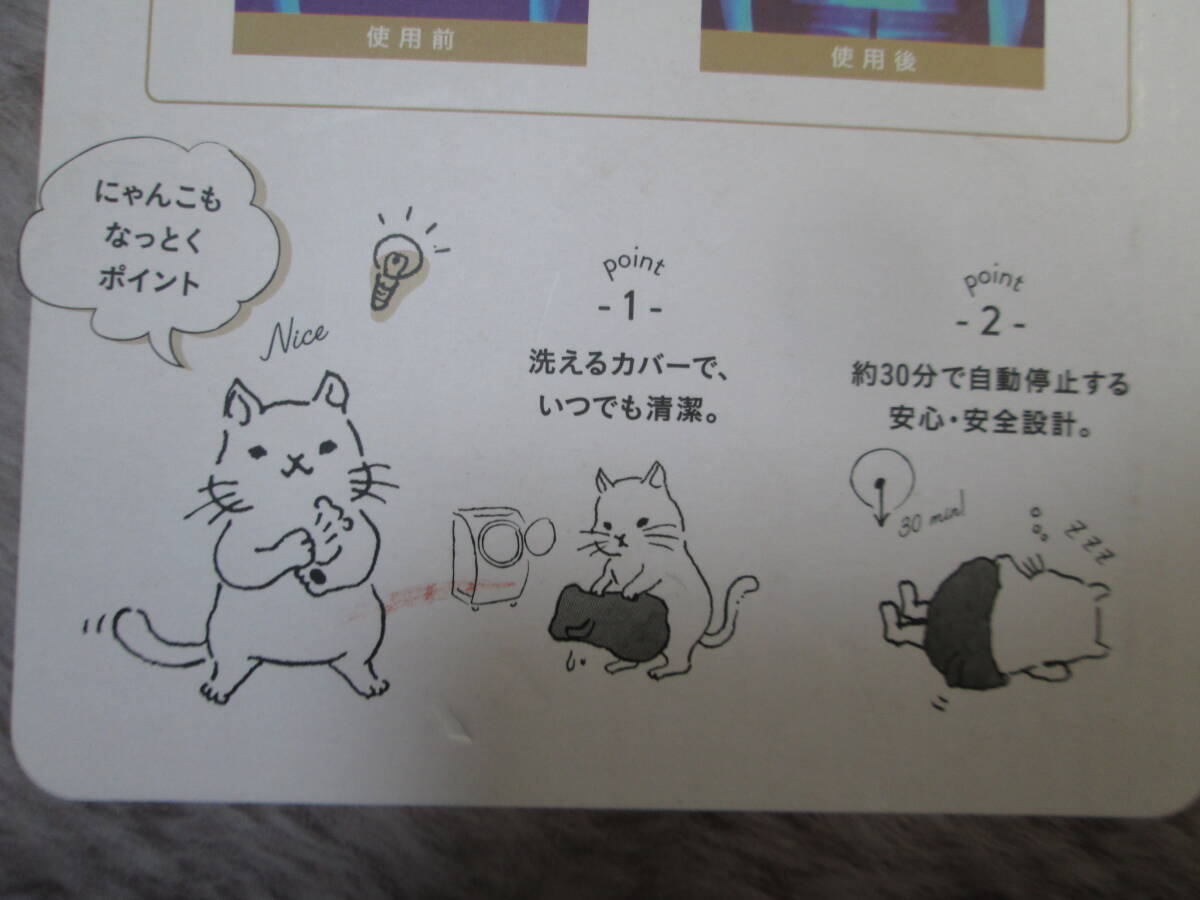 使用前
使用後
にゃんこも
なっとく
ポイント
Nice
point
-1-
洗えるカバーで、
いつでも清潔。
point
-2-
約30分で自動停止する
安心・安全設計。
30 min!
zzz